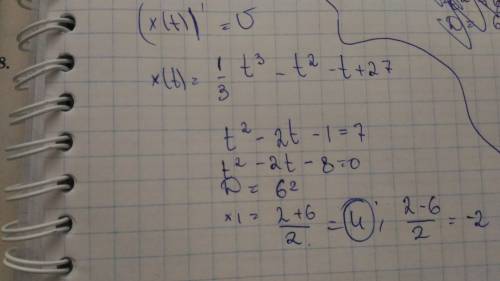 8.
(x(t))' = υ
x(t) = 1/3 t³ - t² - t + 27
t² - 2t - 1 = 7
t² - 2t - 8 = 0
D = 6²
x₁ = (2+6)/2 = 4 ; (2-6)/2 = -2